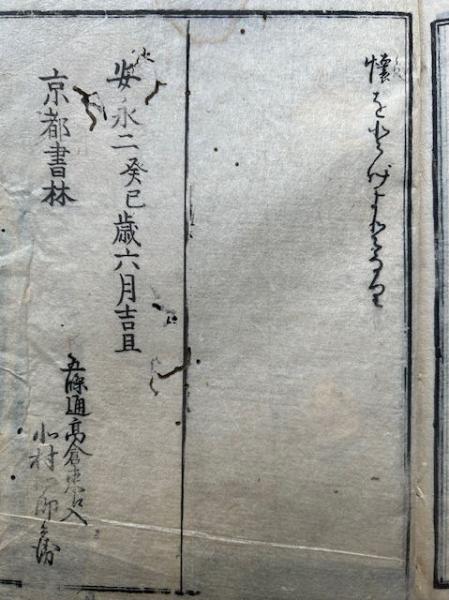 懐をとげよとなり
安永二癸巳歳六月吉旦
京都書林
五條通高倉東江入
北村四郎兵衛